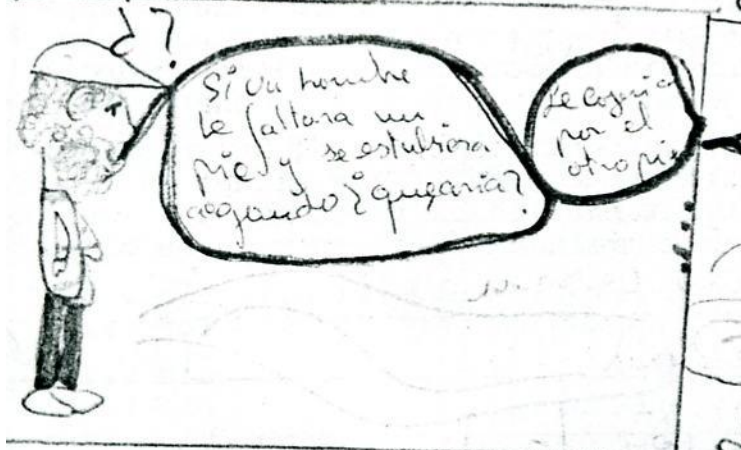 ¿?
Si un hombre
le faltara un
pie y se estubiera
aogando ¿que aria?
Le cogeria
por el
otro pie